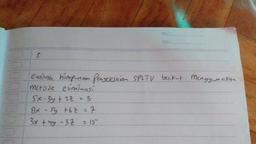 5
himpunan Penyelesaian SPLTV berikut menggunakan
metode eliminasi
5x - 3y + 2z = 3
8x - 5y + 6z = 7
3x + 4y - 3z = 15